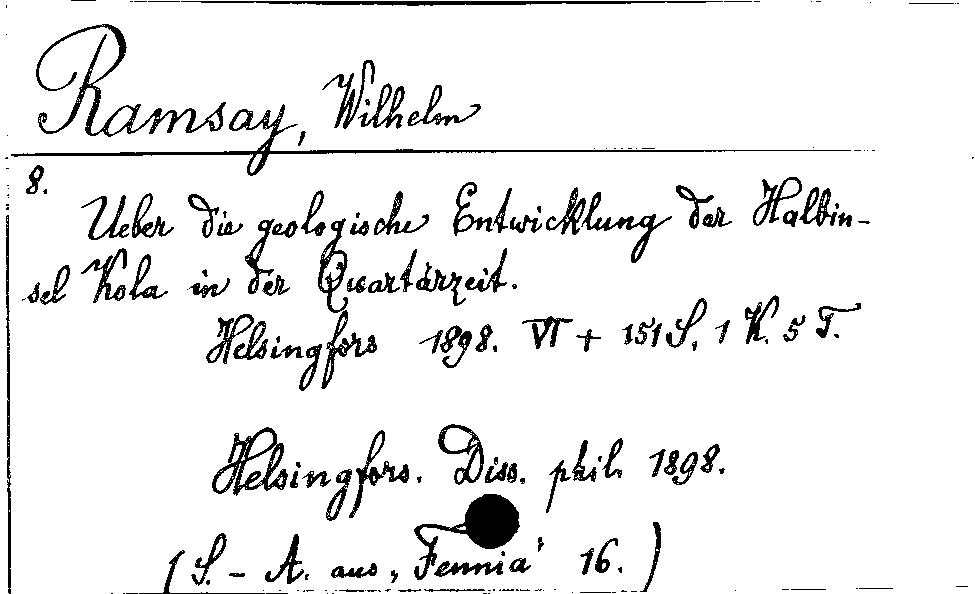 Ramsay, Wilhelm
8.
Ueber die geologische Entwicklung der Halbin-
sel Kola in der Quartärzeit.
Helsingfors 1898. VI + 151 S. 1 K. 5 T.
Helsingfors. Diss. phil. 1898.
(S.-A. aus „Fennia" 16.)